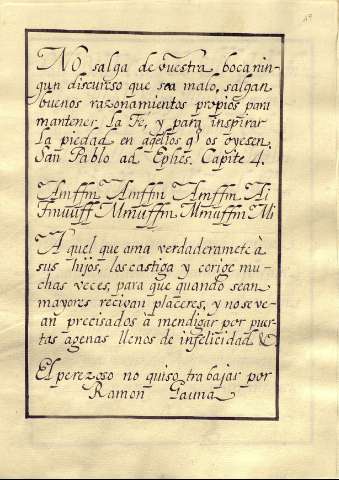 49
No salga de vuestra boca nin-
gun discurso que sea malo, salgan
buenos razonamientos propios para
mantener la Fé, y para inspirar
la piedad en aqellos q.e os oyesen.
San Pablo ad Ephes. Capite 4.
Amffm Amffm Amffm Ai
Fmuuff Mmuffm Mmuffm Mi
Aquel que ama verdaderamete à
sus hijos, los castiga y corige mu-
chas veces, para que quando sean
mayores recivan placeres, y no se ve-
an precisados à mendigar por puer-
tas agenas llenos de infelicidad.
El perezoso no quiso trabajar por
Ramon Gauna